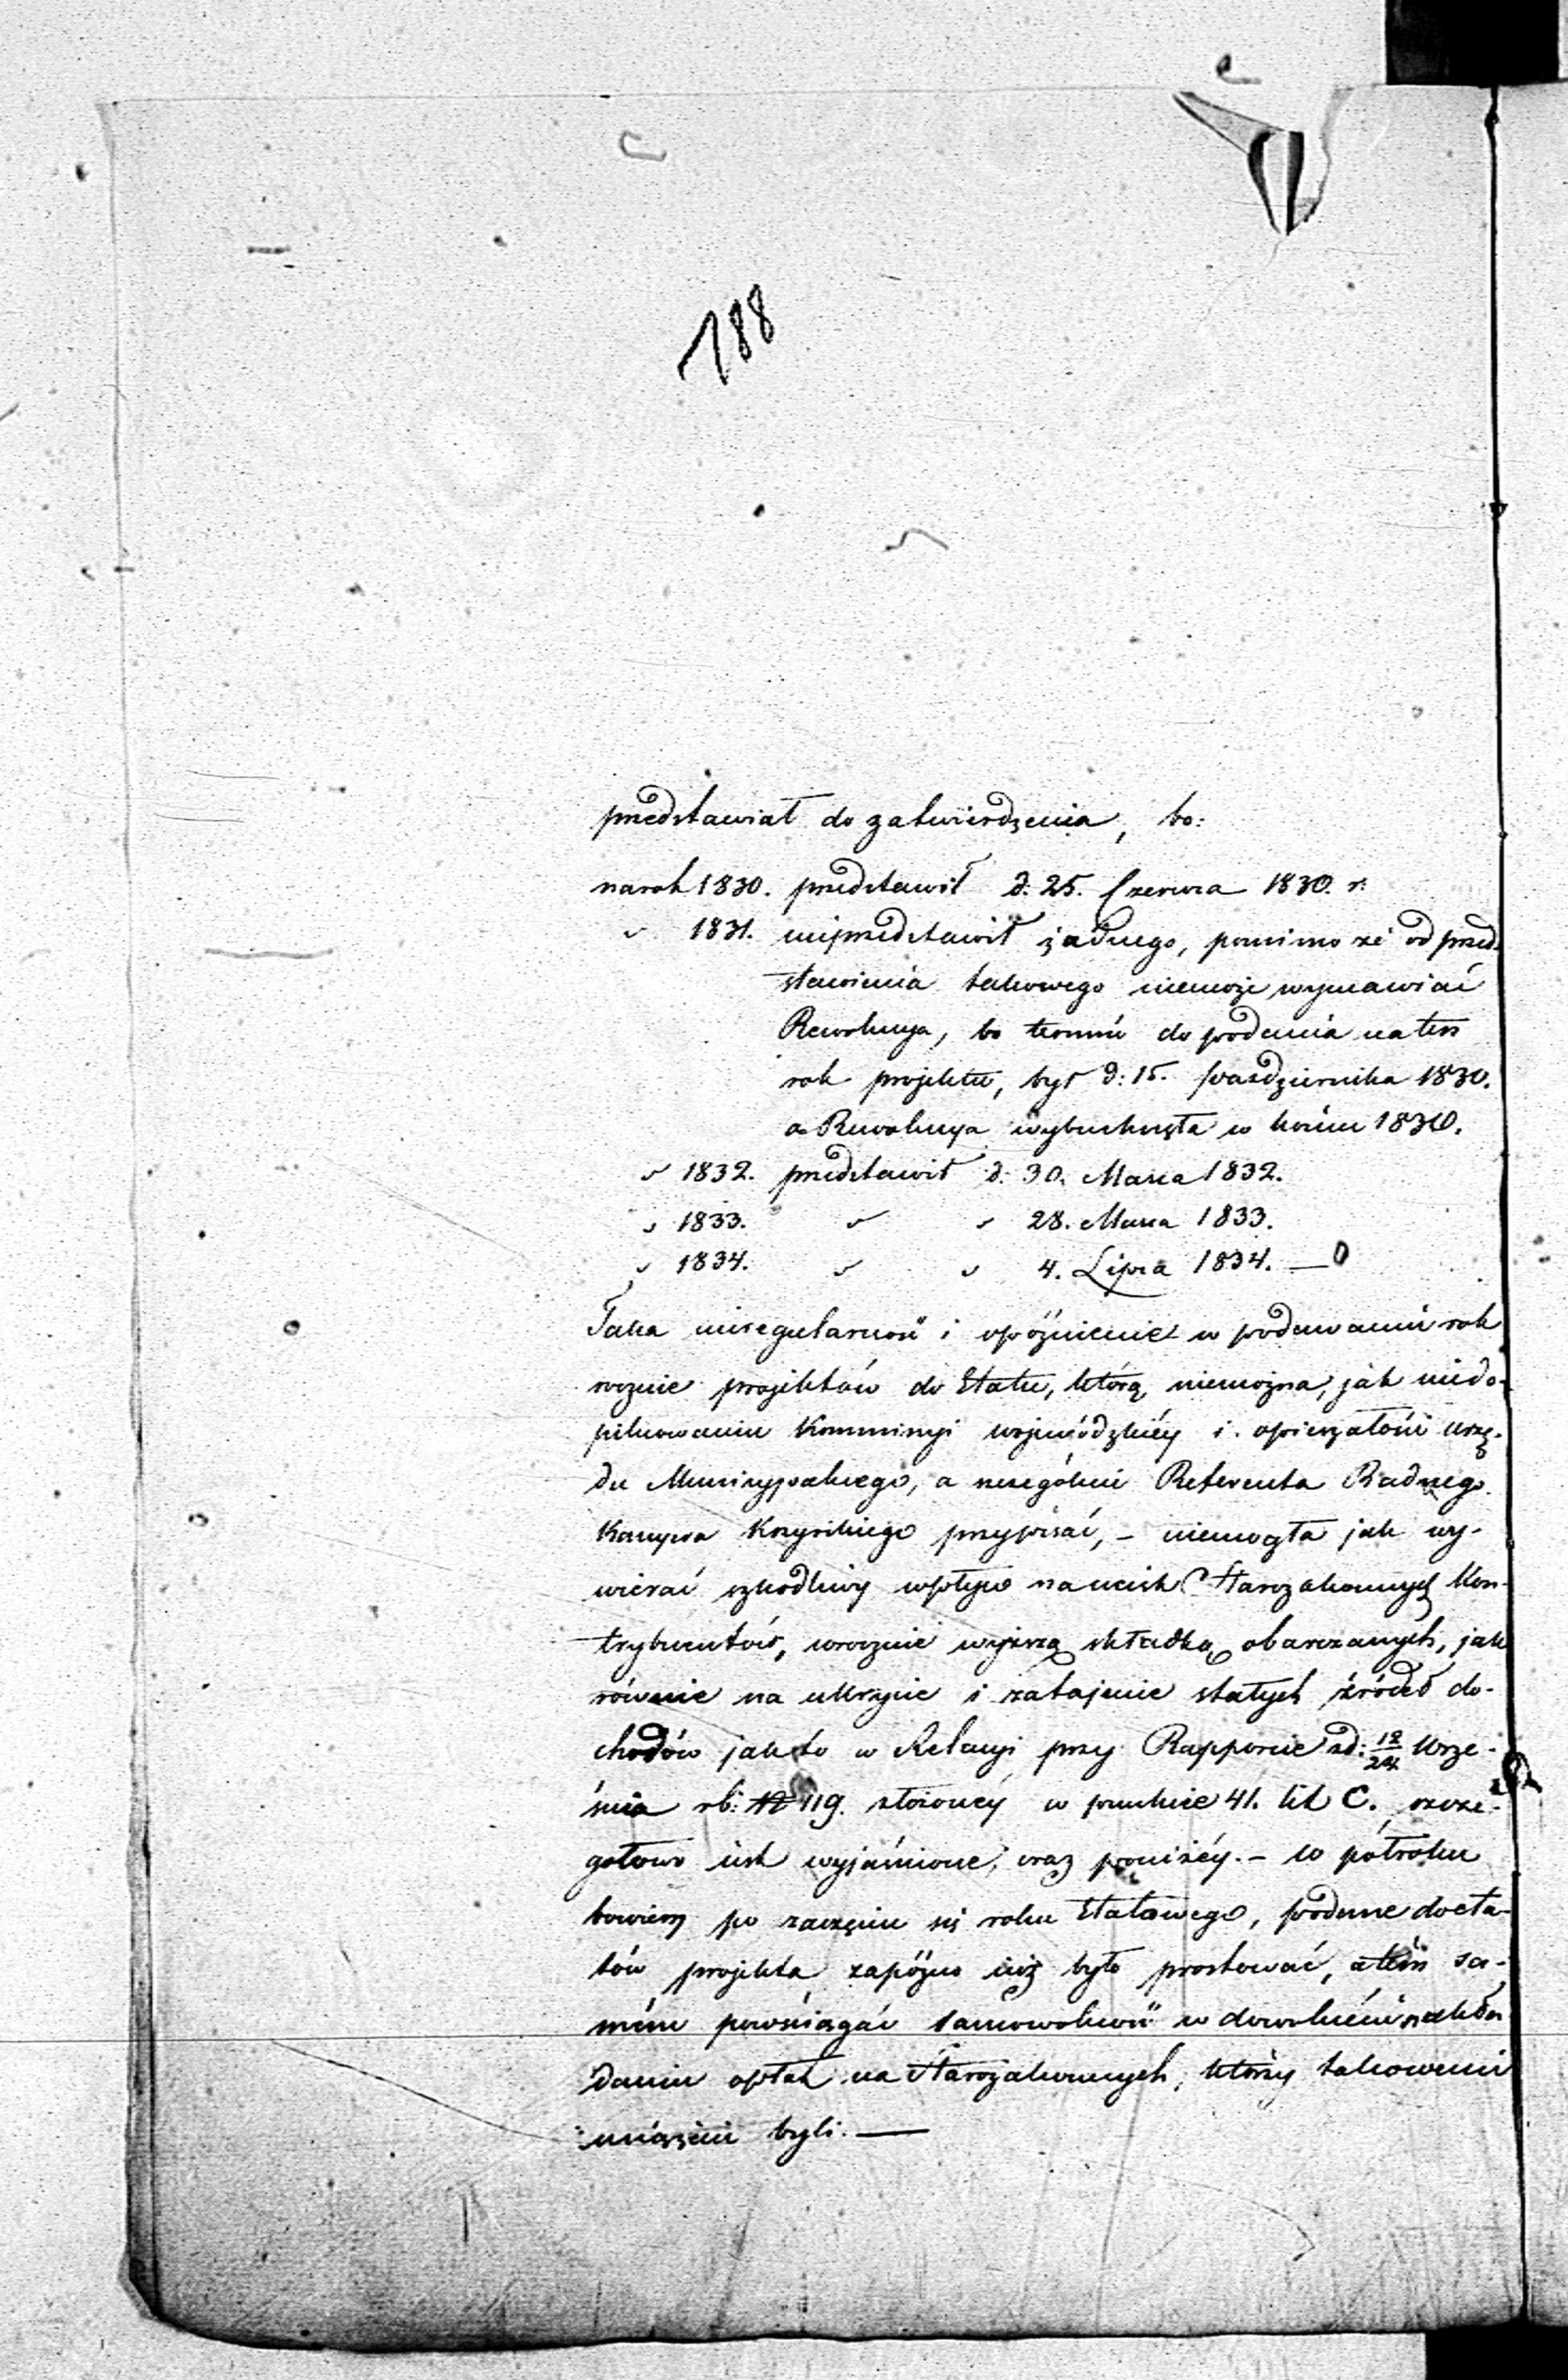 188
przedstawiał do zatwierdzenia, bo:
na rok 1830. przedstawił d: 25. Czerwca 1830. r:
" 1831. nieprzedstawił żadnego, pomimo że od przed-
stawienia takowego niemoże wymawiać
Rewolucya, bo termin do podania na ten
rok projektu, był d: 15. Października 1830.
a Rewolucya wybuchnęła w końcu 1830.
" 1832. przedstawił d: 30. Marca 1832.
" 1833. " " 28. Marca 1833.
" 1834. " " 4. Lipca 1834. —
Taka nieregularność i opóźnienie w podawaniu rok
rocznie projektów do Etatu, którą niemożna, jak niedo-
pilnowaniu Kommissyi wojewódzkiéy i opieszałości urzę-
du Municypalnego, a szczególnie Referenta Radnego
Kacpra przypisać, – niemogła jak wy-
wierać szkodliwy wpływ na ucisk Starozakonnych Kon-
trybuentów, corocznie wyższą składką obarczanych, jak
równie na ukrycie i zatajenie stałych źródeł do-
chodów jak to w Relacyi przy Rapporcie z d: 12/24 Wrze-
śnia rb: 119. złożonéy w punkcie 41. lit C. szcze-
gółowo jest wyjaśnione, oraz poniżéy. – w półroku
bowiem po zaczęciu się roku Etatowego, podane do eta-
tów projekta zapóźno już było prostować, a tém sa-
mém powściągać samowolność w dowolném nakła-
daniu opłat na Starozakonnych, którzy takowemi
uciążeni byli. —